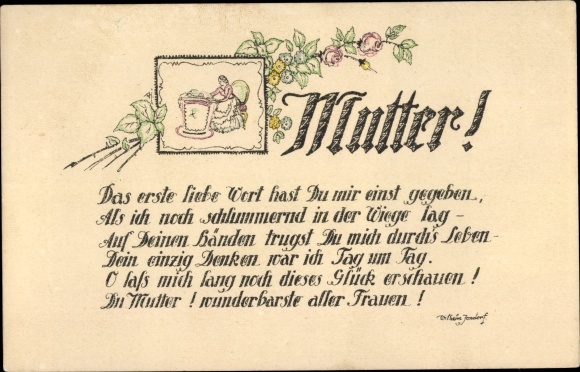 Mutter!
Das erste liebe Wort hast Du mir einst gegeben,
Als ich noch schlummernd in der Wiege lag –
Auf Deinen Händen trugst Du mich durch's Leben –
Dein einzig Denken war ich Tag um Tag.
O laß mich lang noch dieses Glück erschauen!
Du Mutter! wunderbarste aller Frauen!
Wilhelm